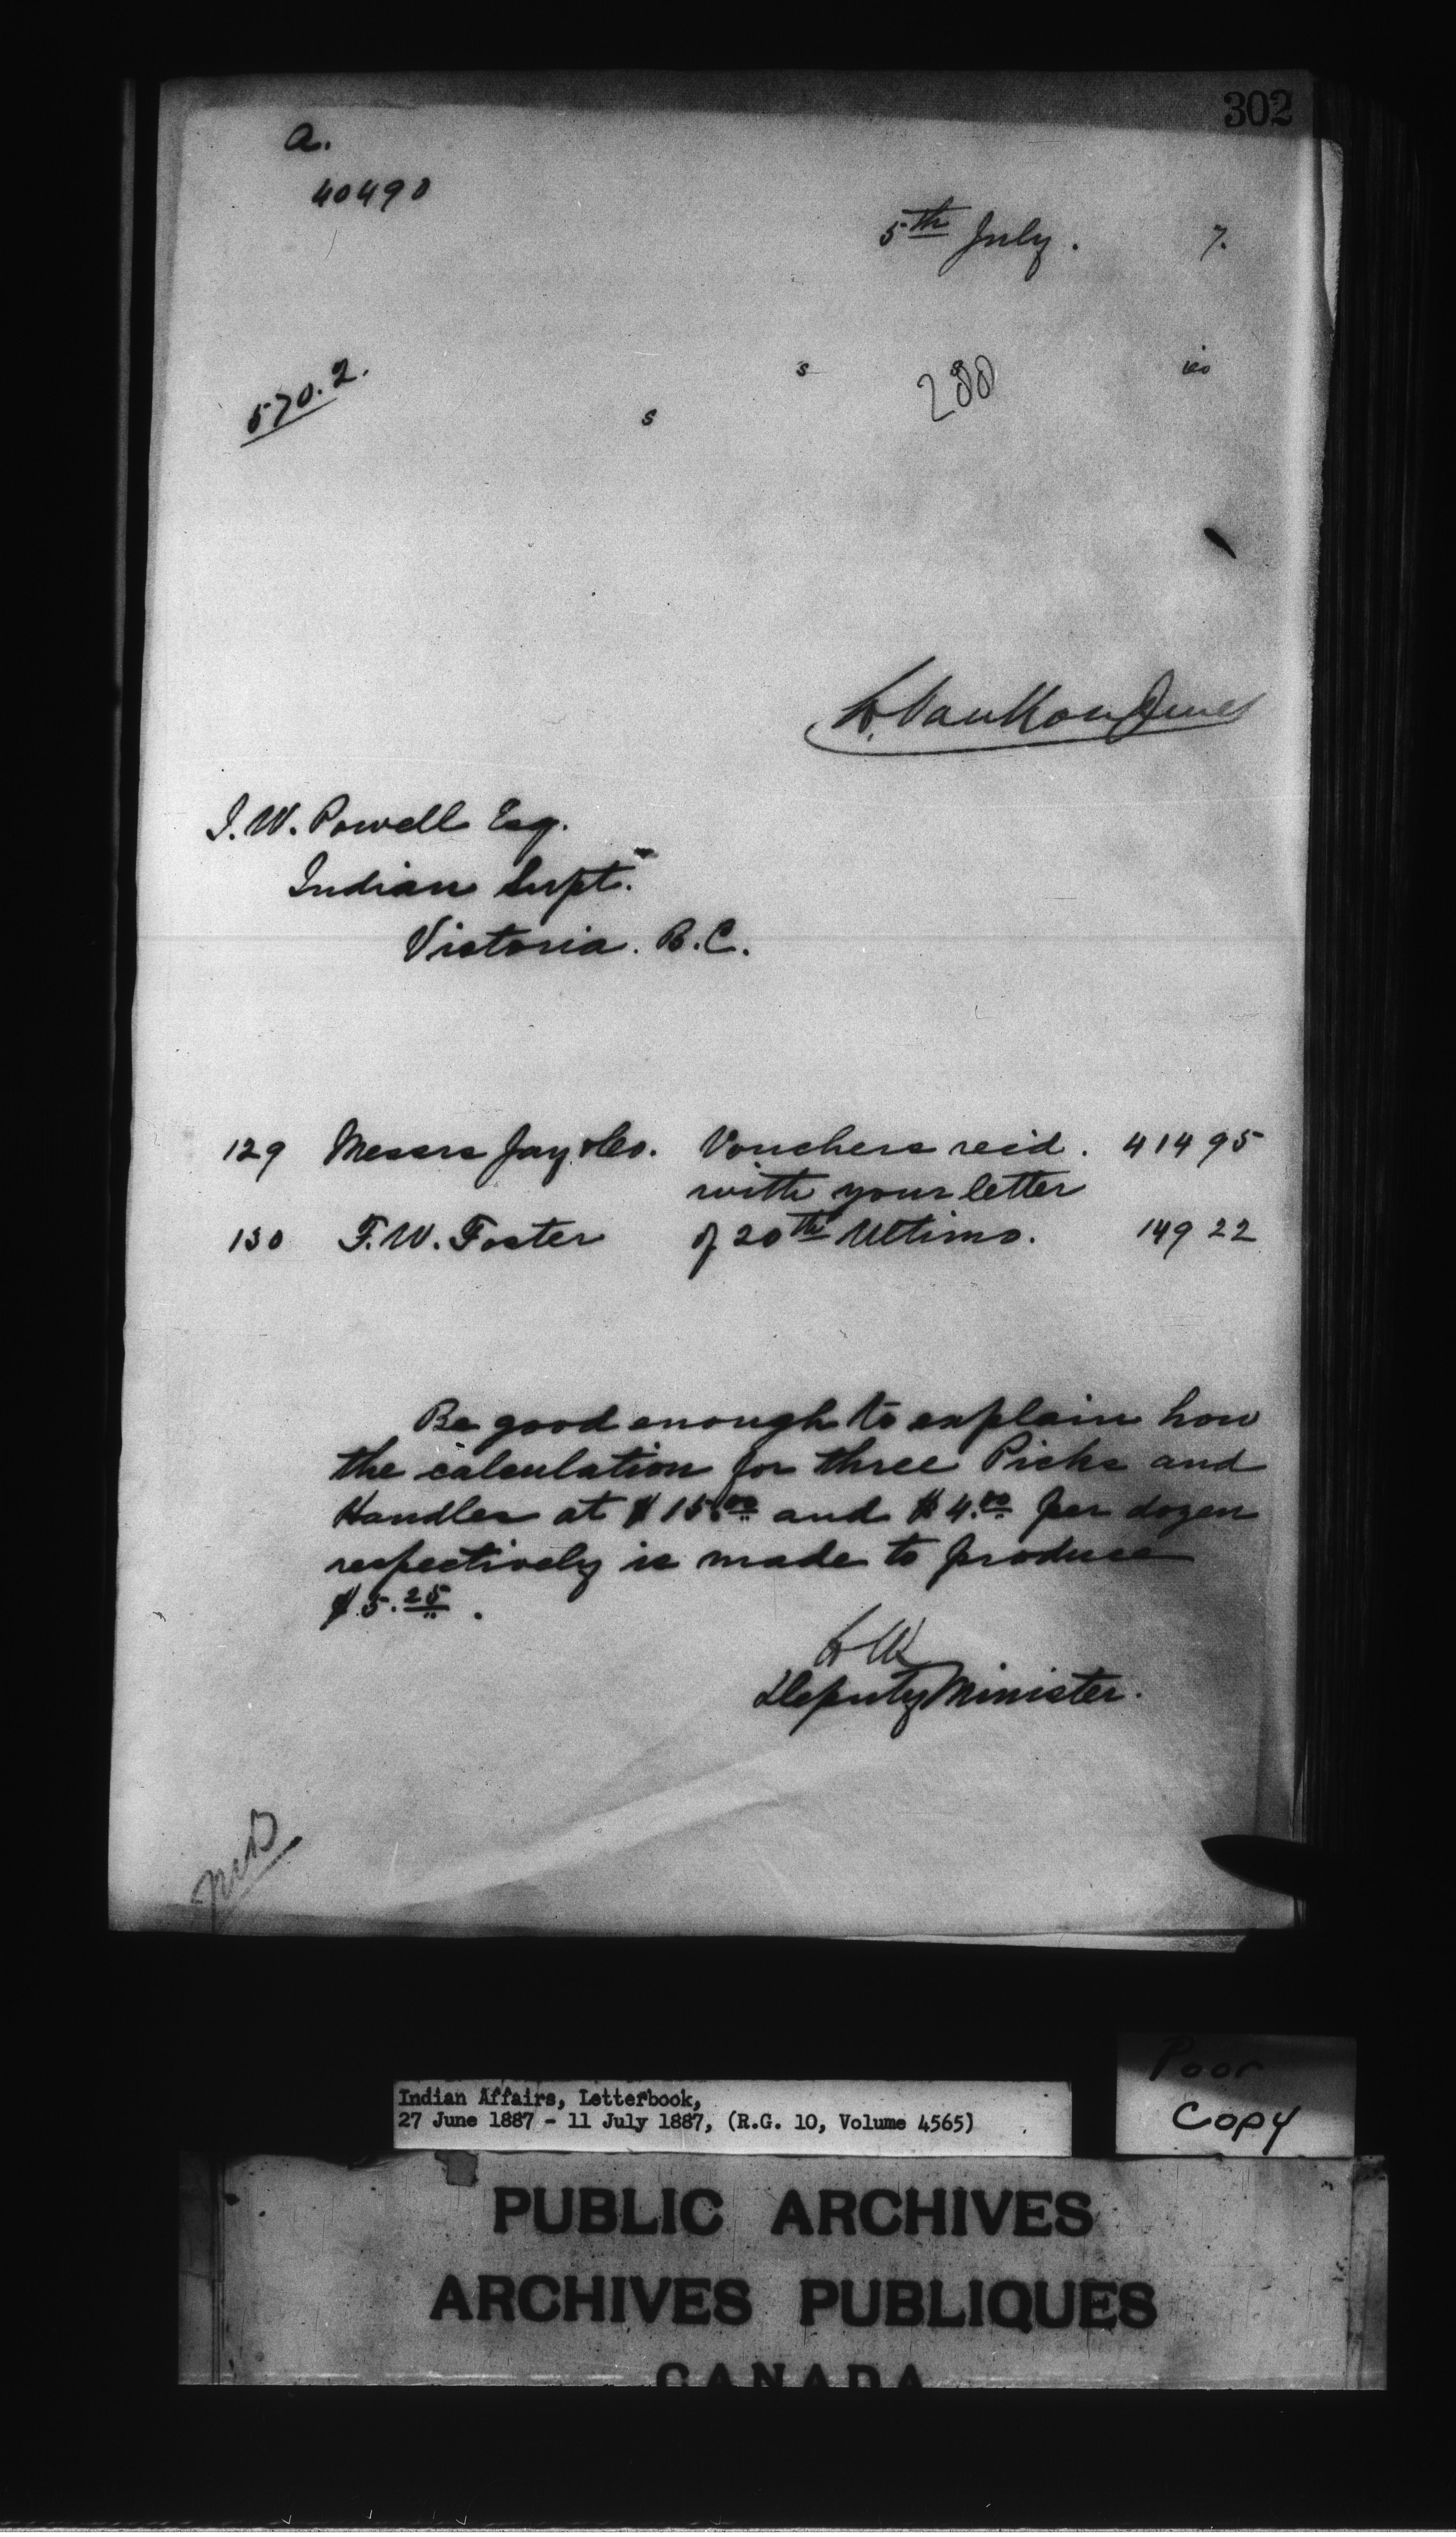 302
a.
40490
5th July. 7.
570.2.
s 280 ies
s
L. VanKoughnet
I. W. Powell Esq.
Indian Supt.
Victoria. B.C.
129 Messrs Jay & Co. Vouchers recd. 414 95
with your letter
130 F. W. Foster of 20th Ultimo. 149 22
Be good enough to explain how
the calculation for three Picks and
Handles at $15.00 and $4.00 per dozen
respectively is made to produce
$5.25.
LVK
Deputy Minister.
Poor
Copy
Indian Affairs, Letterbook,
27 June 1887 - 11 July 1887, (R.G. 10, Volume 4565)
PUBLIC ARCHIVES
ARCHIVES PUBLIQUES
CANADA